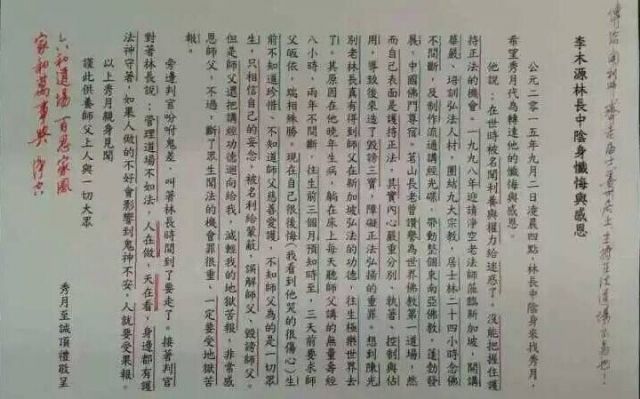 李木源林長中陰身懺悔與感恩
公元二零一五年九月二日凌晨四點，林長中陰身來找秀月，
希望秀月代為轉達他的懺悔與感恩。
他說：，在世時被名聞利養與權力給迷惑了，沒能把握住護
持正法的機會。一九九八年迎請淨空老法師蒞臨新加坡，開講
華嚴、培訓弘法人材，團結九大宗教，居士林二十四小時念佛
不間斷，及制作流通講經光碟，帶動整個東南亞佛教，蓬勃發
展，中國佛門尊宿。茗山長老曾讚譽為世界佛教第一道場，然
而自己表面是護持正法，其實內心嚴重分別、執著、控制與佔
用，導致後來造了毀謗三寶，障礙正法弘揚的重罪。想到陳光
別老林長真有得到師父在新加坡弘法的功德，往生極樂世界去
了。其原因在他晚年生病，躺在床上每天聽師父講的無量壽經
八小時，兩年不間斷，往生前三個月預知時至，三天前要求師
父皈依，瑞相殊勝。現在自己很後悔(我看到他哭的很傷心)生
前不知道珍惜、不知道師父慈善愛護、不知師父為的是一切眾
生，只相信自己的妄念，被名利給蒙蔽，誤解師父，毀謗師父。
但是師父還把講經功德迴向給我，減輕我的地獄苦報，非常感
恩師父，不過，斷了眾生聞法的機會罪很重、一定要受地獄苦
報。
旁邊判官吩咐鬼差，叫著林長時間到了要走了。接著判官
對著林長說：管理道場不如法，人在做，天在看，身邊都有護
法神守著，如果人做的不好會影響到鬼神不安，人就要受果報。
以上秀月親身見聞
謹此供養師父上人與一切大眾
秀月至誠頂禮敬呈
六和道場 百忍家風
家和萬事興 淨空